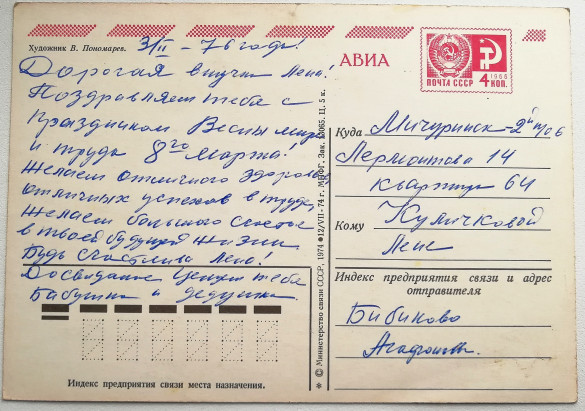 Художник В. Пономарев.
3/II - 76 годы!
Дорогая внучка Лена!
Поздравляем тебя с
Праздником Весны мира
и труда 8го Марта!
Желаем отличного здоровья
отличных успехов в труде,
Желаем большого счастья
в твоей будущей жизни
Будь счастлива Лена!
До свидание целуем тебя
Бабушка и дедушка.
Индекс предприятия связи места назначения.
© Министерство связи СССР, 1974 • 12/VII - 74 г. МПФГ. Зак. 2065. Ц. 5 к.
АВИА
ПОЧТА СССР 1966 4 КОП.
Куда Мичуринск-2й
Лермонтова 14
квартира 64
Кому Куличковой
Лене
Индекс предприятия связи и адрес
отправителя
Бибиково